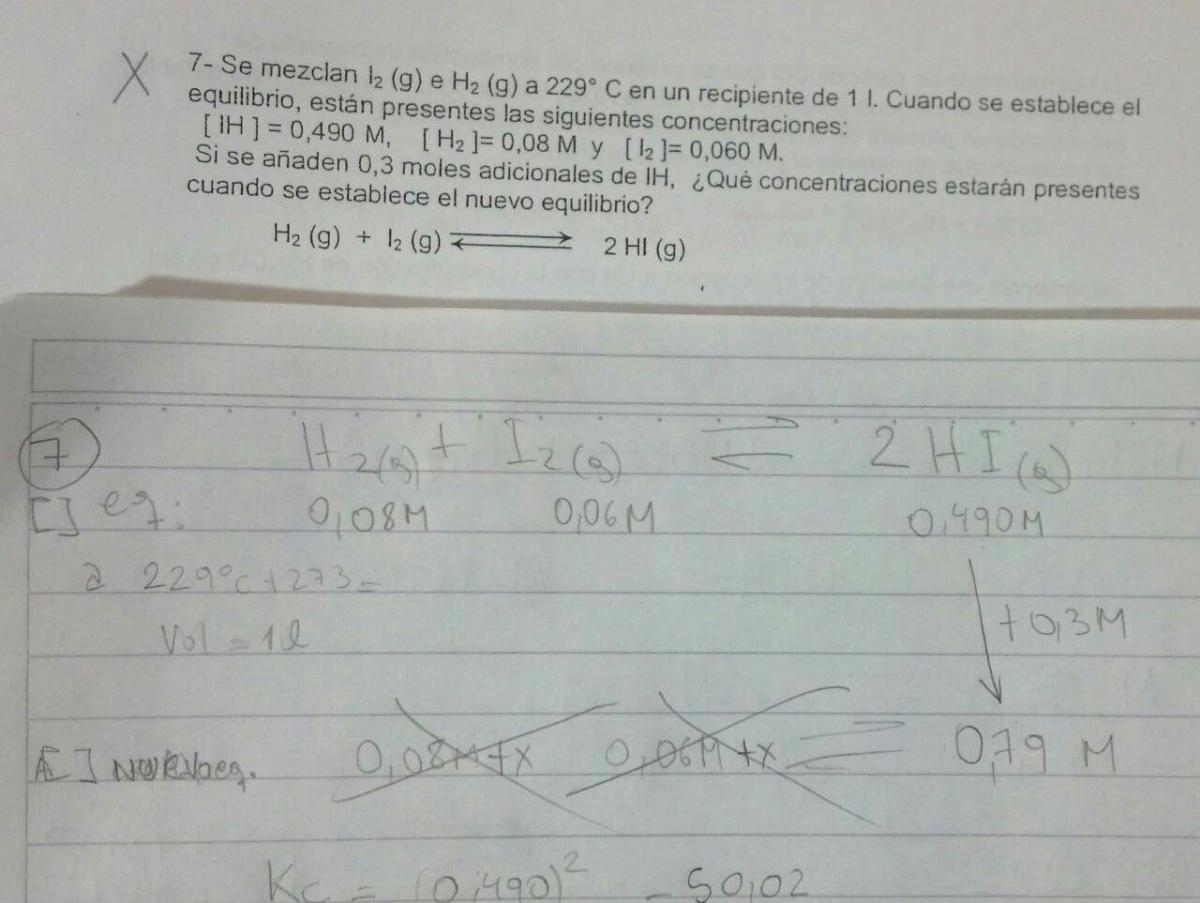 7- Se mezclan I₂ (g) e H₂ (g) a 229° C en un recipiente de 1 l. Cuando se establece el
equilibrio, están presentes las siguientes concentraciones:
[ IH ] = 0,490 M, [ H₂ ]= 0,08 M y [ I₂ ]= 0,060 M.
Si se añaden 0,3 moles adicionales de IH, ¿Qué concentraciones estarán presentes
cuando se establece el nuevo equilibrio?
H₂ (g) + I₂ (g) ⇌ 2 HI (g)
7 H₂(g) + I₂(g) ⇌ 2 HI(g)
[ ] eq: 0,08M 0,06M 0,490M
a 229°C + 273 =
+ 0,3 M
Vol = 1 l
[ ] nuevo eq. 0,08M + x 0,06M + x ⇌ 0,79 M
Kc = (0,490)² = 50,02